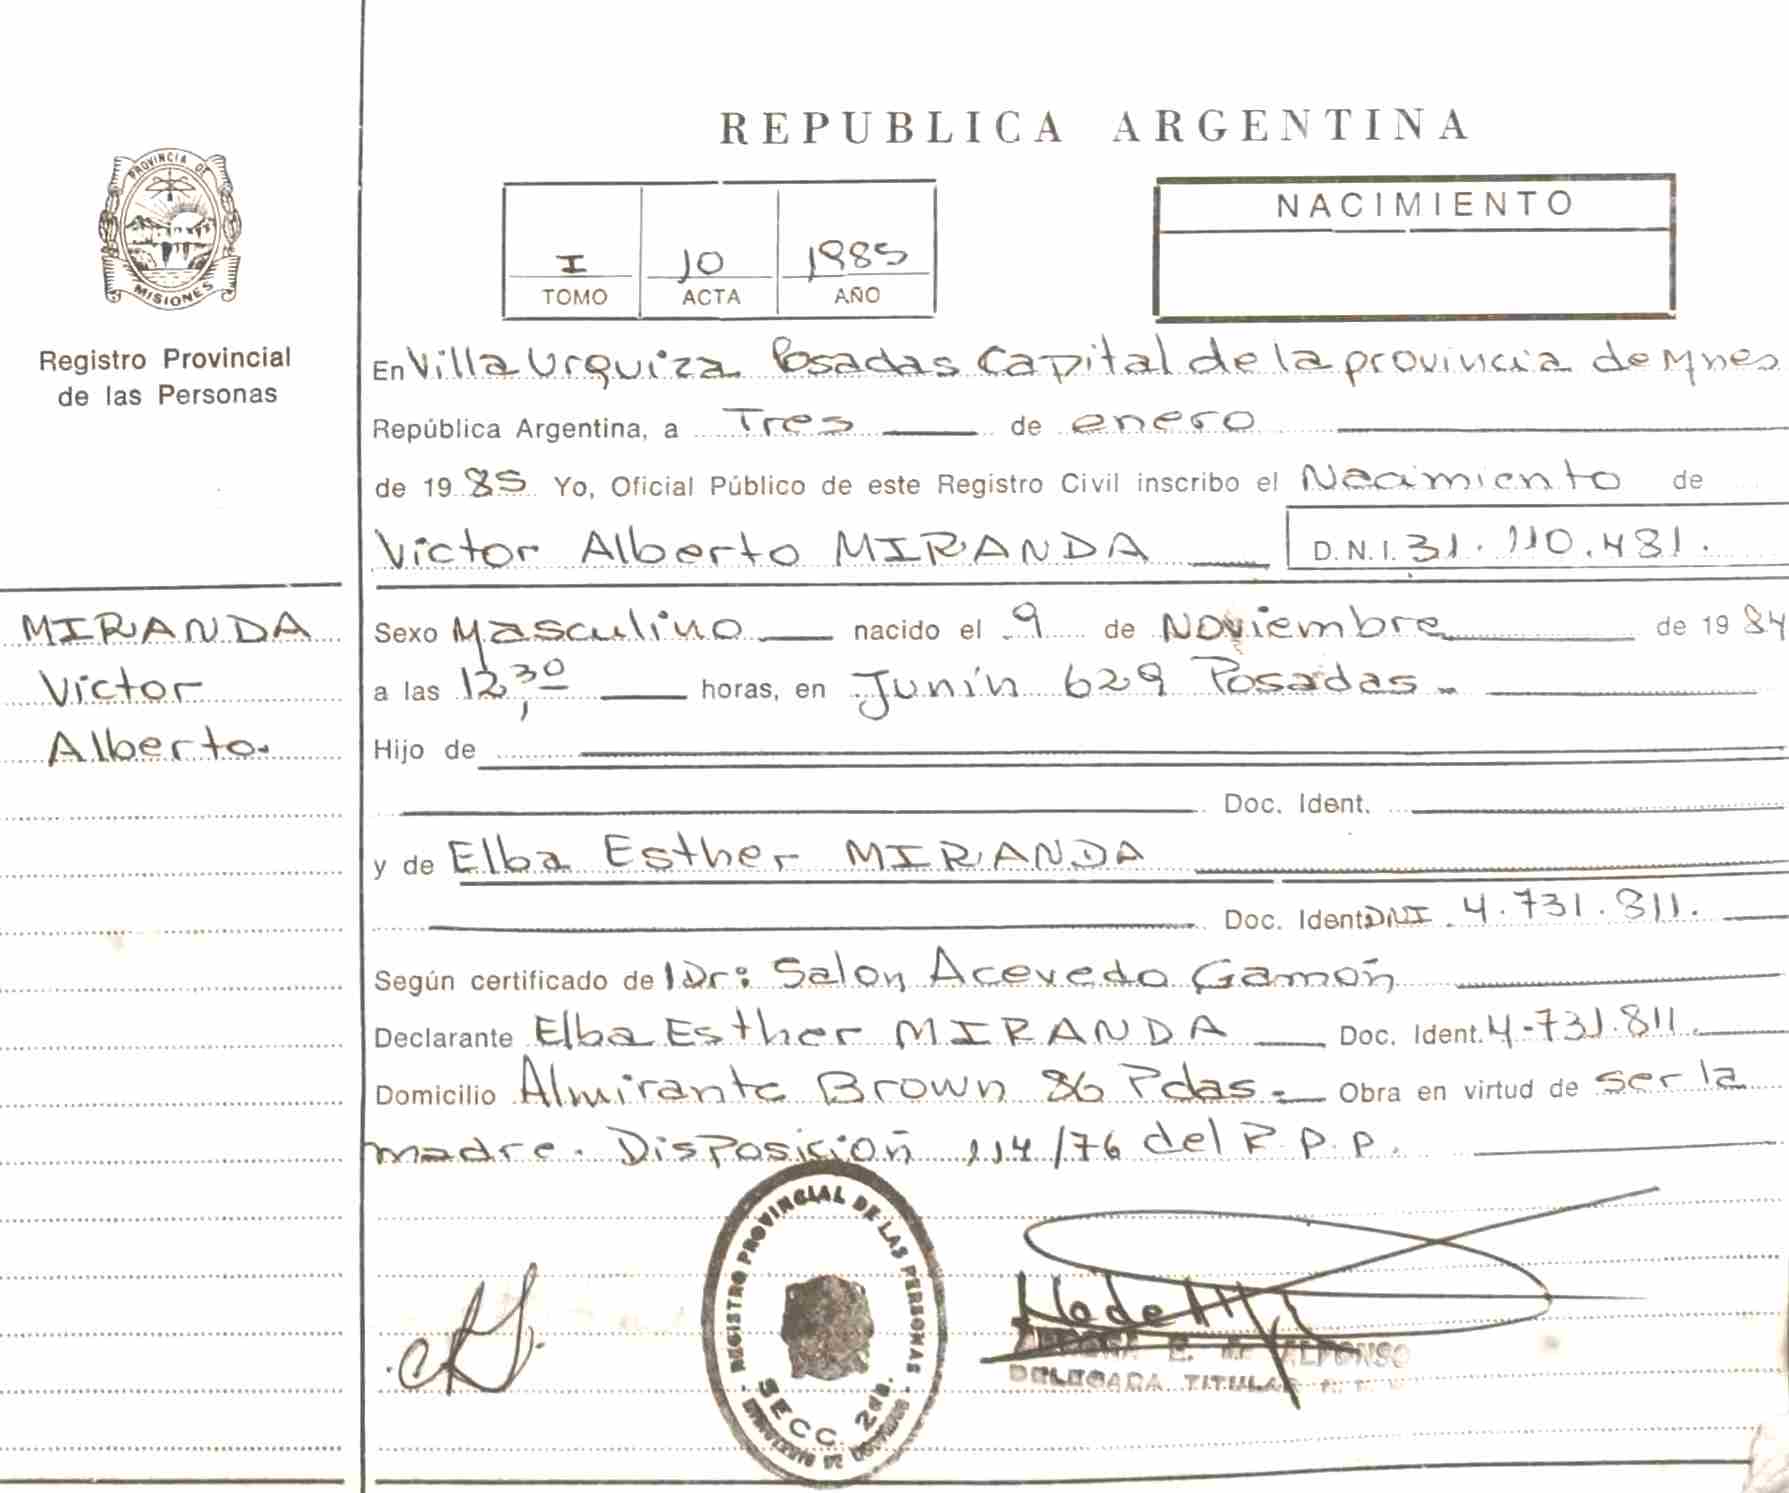 REPUBLICA ARGENTINA
PROVINCIA DE
MISIONES
Registro Provincial
de las Personas
I 10 1985
TOMO ACTA AÑO
NACIMIENTO
En Villa Urquiza Posadas Capital de la provincia de Mnes
República Argentina, a Tres de enero
de 1985 Yo, Oficial Público de este Registro Civil inscribo el Nacimiento de
Victor Alberto MIRANDA D.N.I. 31.110.481.
MIRANDA
Victor
Alberto.
Sexo Masculino nacido el 9 de Noviembre de 1984
a las 12,30 horas, en Junín 629 Posadas.
Hijo de
Doc. Ident.
y de Elba Esther MIRANDA
Doc. Ident DNI. 4.731.811.
Según certificado de l Dr: Salon Acevedo Gamón
Declarante Elba Esther MIRANDA Doc. Ident. 4.731.811.
Domicilio Almirante Brown 86 Pdas. Obra en virtud de ser la
madre. Disposición 114/76 del R.P.P.
REGISTRO PROVINCIAL DE LAS PERSONAS
SECC. 2da.
E. de ALFONSO
DELEGADA TITULAR